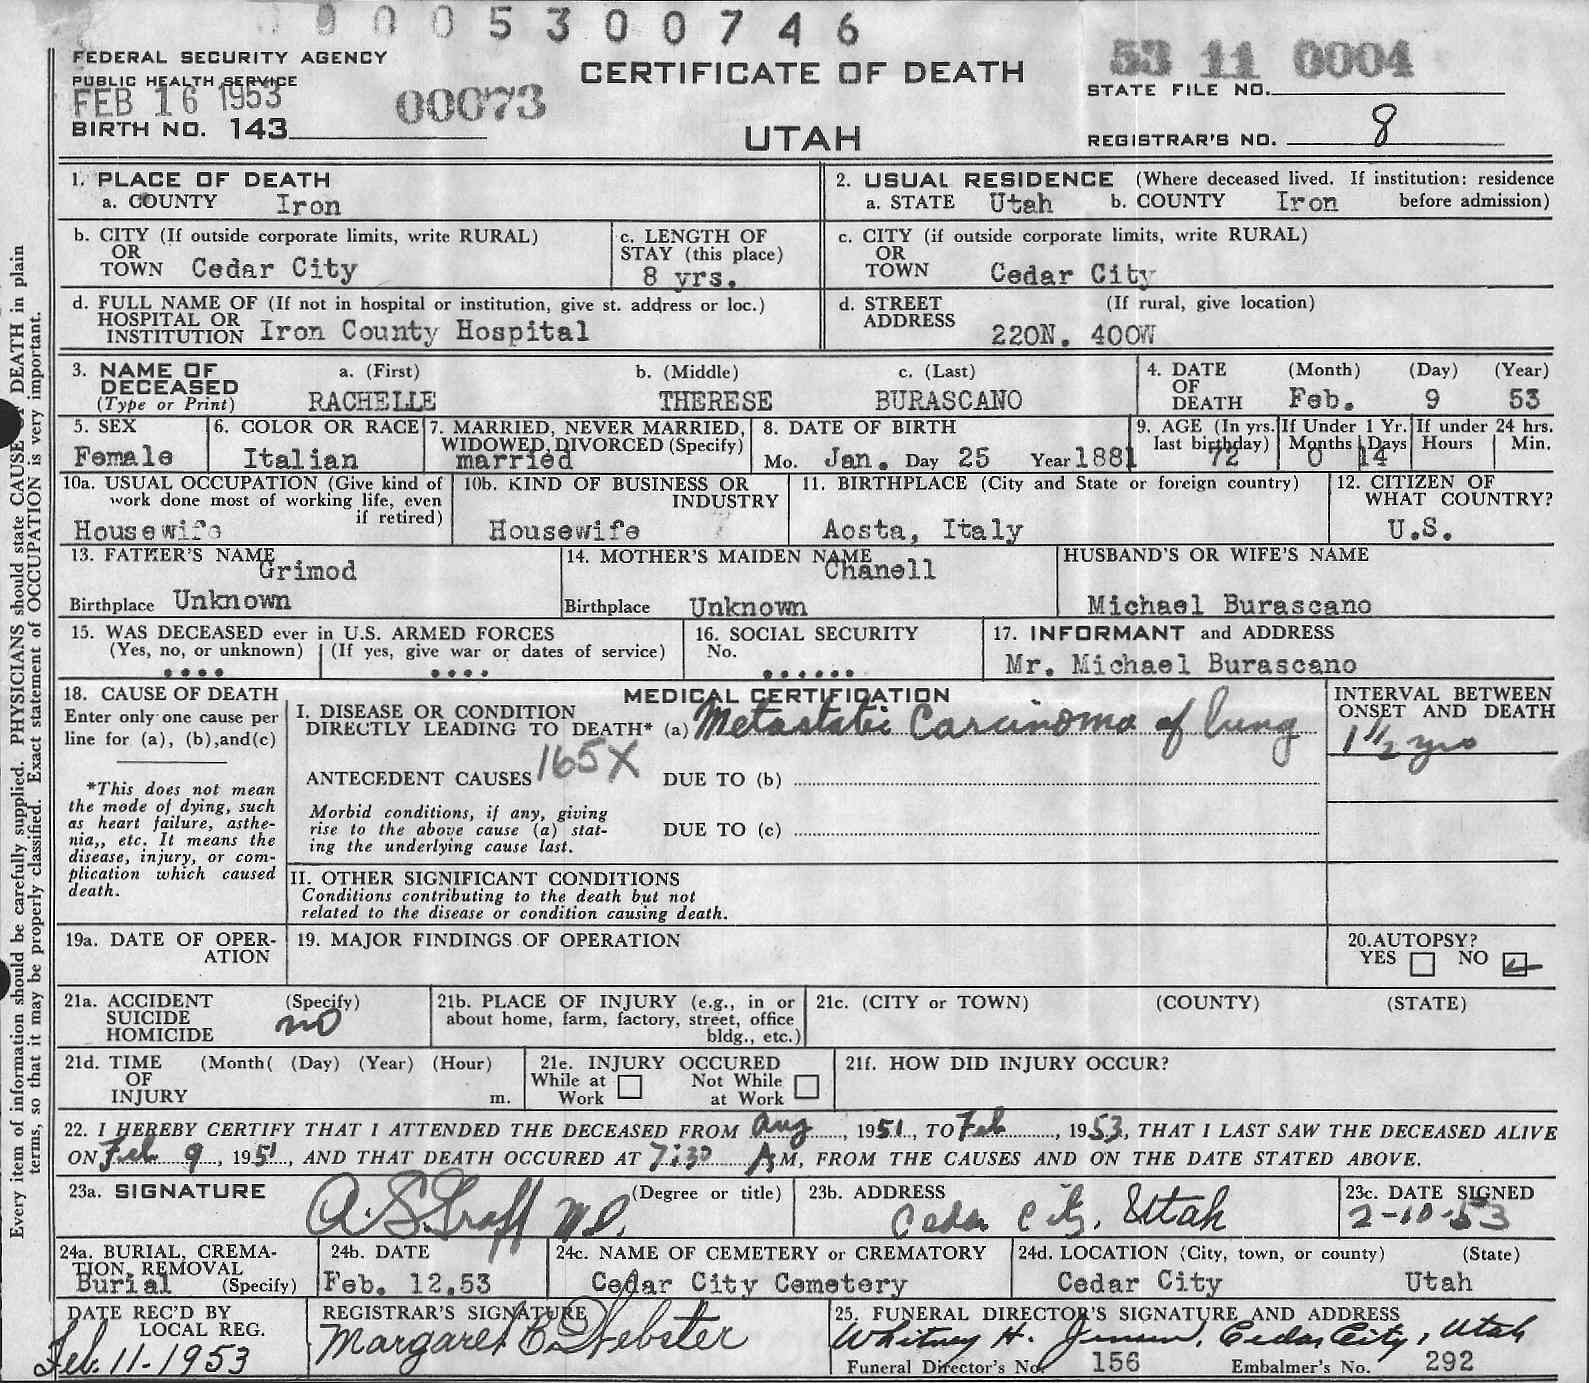 0 0 0 5 3 0 0 7 4 6
FEDERAL SECURITY AGENCY
PUBLIC HEALTH SERVICE
FEB 16 1953
00073
BIRTH NO. 143
CERTIFICATE OF DEATH
UTAH
53 11 0004
STATE FILE NO.
REGISTRAR'S NO. 8
1. PLACE OF DEATH
a. COUNTY Iron
2. USUAL RESIDENCE (Where deceased lived. If institution: residence before admission)
a. STATE Utah b. COUNTY Iron
b. CITY (If outside corporate limits, write RURAL)
OR
TOWN Cedar City
c. LENGTH OF
STAY (this place)
8 yrs.
c. CITY (if outside corporate limits, write RURAL)
OR
TOWN Cedar City
d. FULL NAME OF (If not in hospital or institution, give st. address or loc.)
HOSPITAL OR
INSTITUTION Iron County Hospital
d. STREET (If rural, give location)
ADDRESS
220N. 400W
3. NAME OF
DECEASED
(Type or Print)
a. (First) b. (Middle) c. (Last)
RACHELLE THERESE BURASCANO
4. DATE (Month) (Day) (Year)
OF
DEATH Feb. 9 53
5. SEX
Female
6. COLOR OR RACE
Italian
7. MARRIED, NEVER MARRIED,
WIDOWED, DIVORCED (Specify)
married
8. DATE OF BIRTH
Mo. Jan. Day 25 Year 1881
9. AGE (In yrs. last birthday)
72
If Under 1 Yr.
Months Days
0 14
If under 24 hrs.
Hours Min.
10a. USUAL OCCUPATION (Give kind of
work done most of working life, even
if retired)
Housewife
10b. KIND OF BUSINESS OR
INDUSTRY
Housewife
11. BIRTHPLACE (City and State or foreign country)
Aosta, Italy
12. CITIZEN OF
WHAT COUNTRY?
U.S.
13. FATHER'S NAME
Grimod
Birthplace Unknown
14. MOTHER'S MAIDEN NAME
Chanell
Birthplace Unknown
HUSBAND'S OR WIFE'S NAME
Michael Burascano
15. WAS DECEASED ever in U.S. ARMED FORCES
(Yes, no, or unknown) (If yes, give war or dates of service)
.... ....
16. SOCIAL SECURITY
No.
......
17. INFORMANT and ADDRESS
Mr. Michael Burascano
18. CAUSE OF DEATH
Enter only one cause per
line for (a), (b),and(c)
*This does not mean
the mode of dying, such
as heart failure, asthe-
nia,, etc. It means the
disease, injury, or com-
plication which caused
death.
MEDICAL CERTIFICATION
I. DISEASE OR CONDITION
DIRECTLY LEADING TO DEATH* (a) Metastatic Carcinoma of lung
ANTECEDENT CAUSES 165X DUE TO (b)
Morbid conditions, if any, giving
rise to the above cause (a) stat-
ing the underlying cause last.
DUE TO (c)
II. OTHER SIGNIFICANT CONDITIONS
Conditions contributing to the death but not
related to the disease or condition causing death.
INTERVAL BETWEEN
ONSET AND DEATH
1 1/2 yrs
19a. DATE OF OPER-
ATION
19. MAJOR FINDINGS OF OPERATION
20.AUTOPSY?
YES NO
21a. ACCIDENT (Specify)
SUICIDE
HOMICIDE no
21b. PLACE OF INJURY (e.g., in or
about home, farm, factory, street, office
bldg., etc.)
21c. (CITY or TOWN) (COUNTY) (STATE)
21d. TIME (Month( (Day) (Year) (Hour)
OF
INJURY m.
21e. INJURY OCCURED
While at Work Not While at Work
21f. HOW DID INJURY OCCUR?
22. I HEREBY CERTIFY THAT I ATTENDED THE DECEASED FROM Aug, 1951, TO Feb, 1953, THAT I LAST SAW THE DECEASED ALIVE
ON Feb 9, 1951, AND THAT DEATH OCCURED AT 7:30 A M, FROM THE CAUSES AND ON THE DATE STATED ABOVE.
23a. SIGNATURE (Degree or title)
A. S. Graff M.D.
23b. ADDRESS
Cedar City, Utah
23c. DATE SIGNED
2-10-53
24a. BURIAL, CREMA-
TION, REMOVAL
Burial (Specify)
24b. DATE
Feb. 12.53
24c. NAME OF CEMETERY or CREMATORY
Cedar City Cemetery
24d. LOCATION (City, town, or county) (State)
Cedar City Utah
DATE REC'D BY
LOCAL REG.
Feb. 11-1953
REGISTRAR'S SIGNATURE
Margaret C. Webster
25. FUNERAL DIRECTOR'S SIGNATURE AND ADDRESS
Whitney H. Jensen, Cedar City, Utah
Funeral Director's No. 156 Embalmer's No. 292
Every item of information should be carefully supplied. PHYSICIANS should state CAUSE OF DEATH in plain
terms, so that it may be properly classified. Exact statement of OCCUPATION is very important.